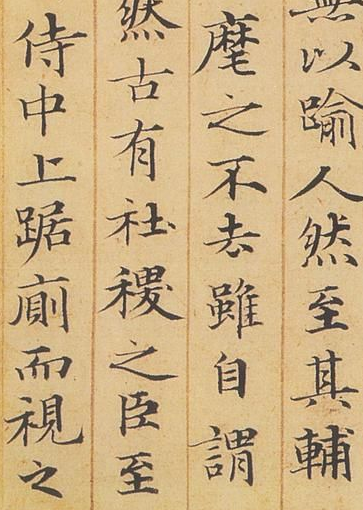 無以踰人然至其輔
麾之不去雖自謂
然古有社稷之臣至
侍中上踞廁而視之